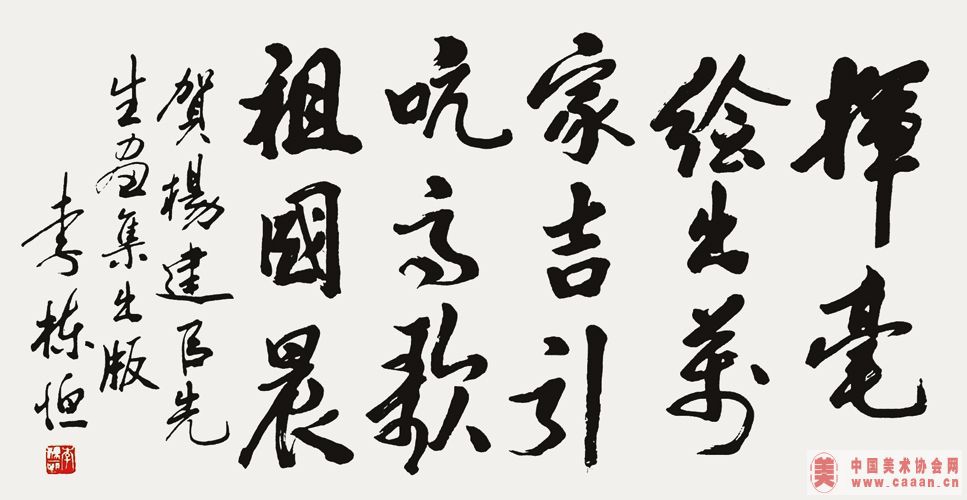 揮毫
繪出萬
家吉引
吭高歌
祖國晨
賀楊建先
生畫集出版
李棟恒
美
中国美术协会网
www.caaan.cn